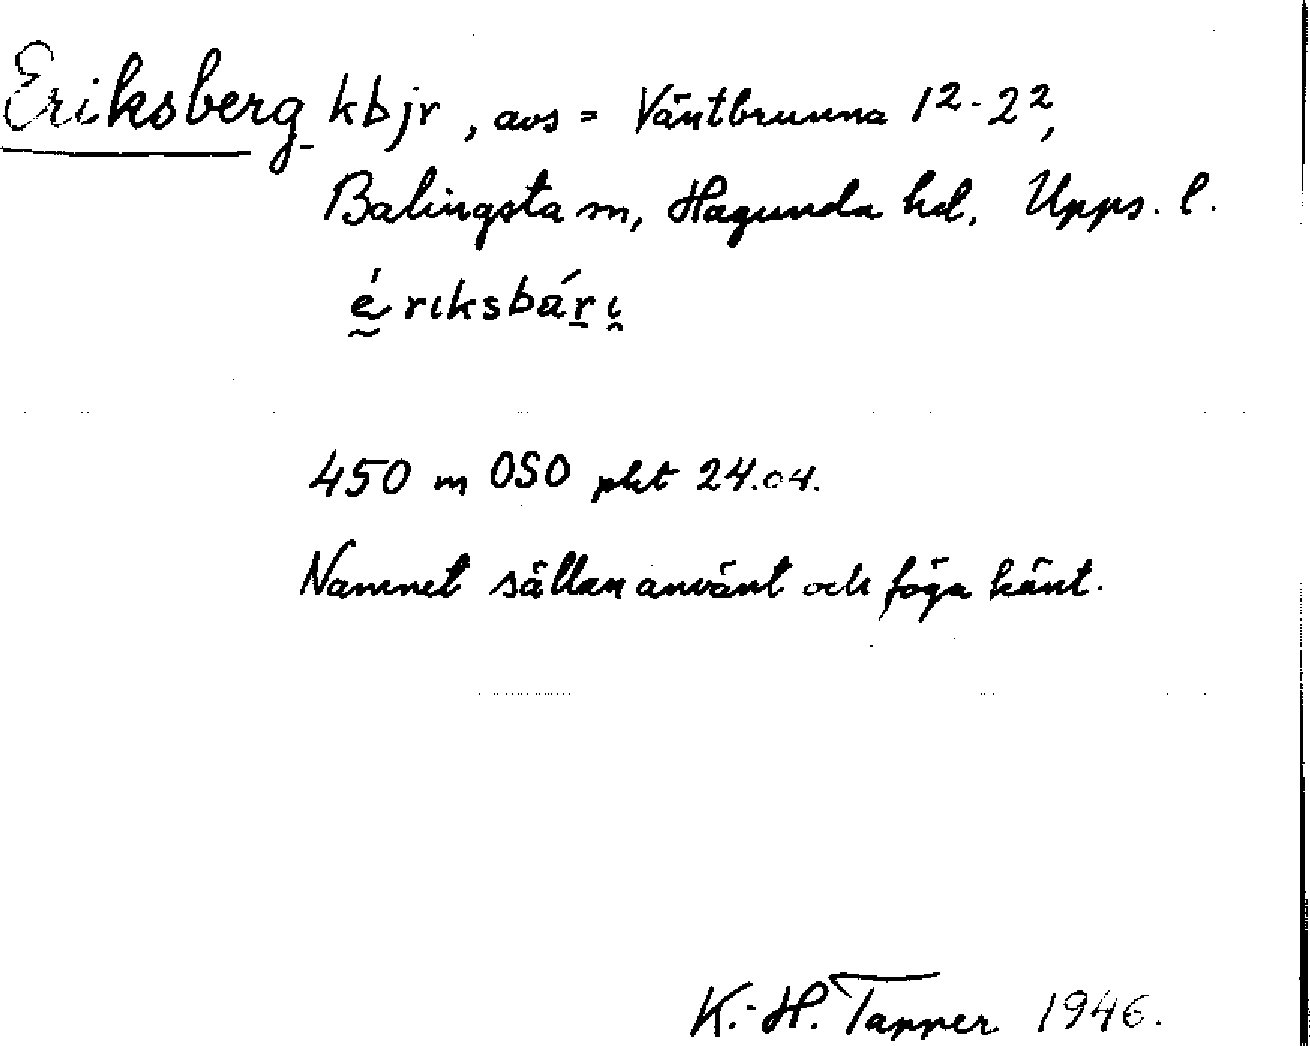 Eriksberg kbjr, avs = Väntbrunna 1²-2²,
Balingsta sn, Hagunda hd, Upps. l.
ḛ́riksbár̲ι̯
450 m OSO pkt 24.04.
Namnet sällan använt och föga känt.
K.-H. Tapper 1946.